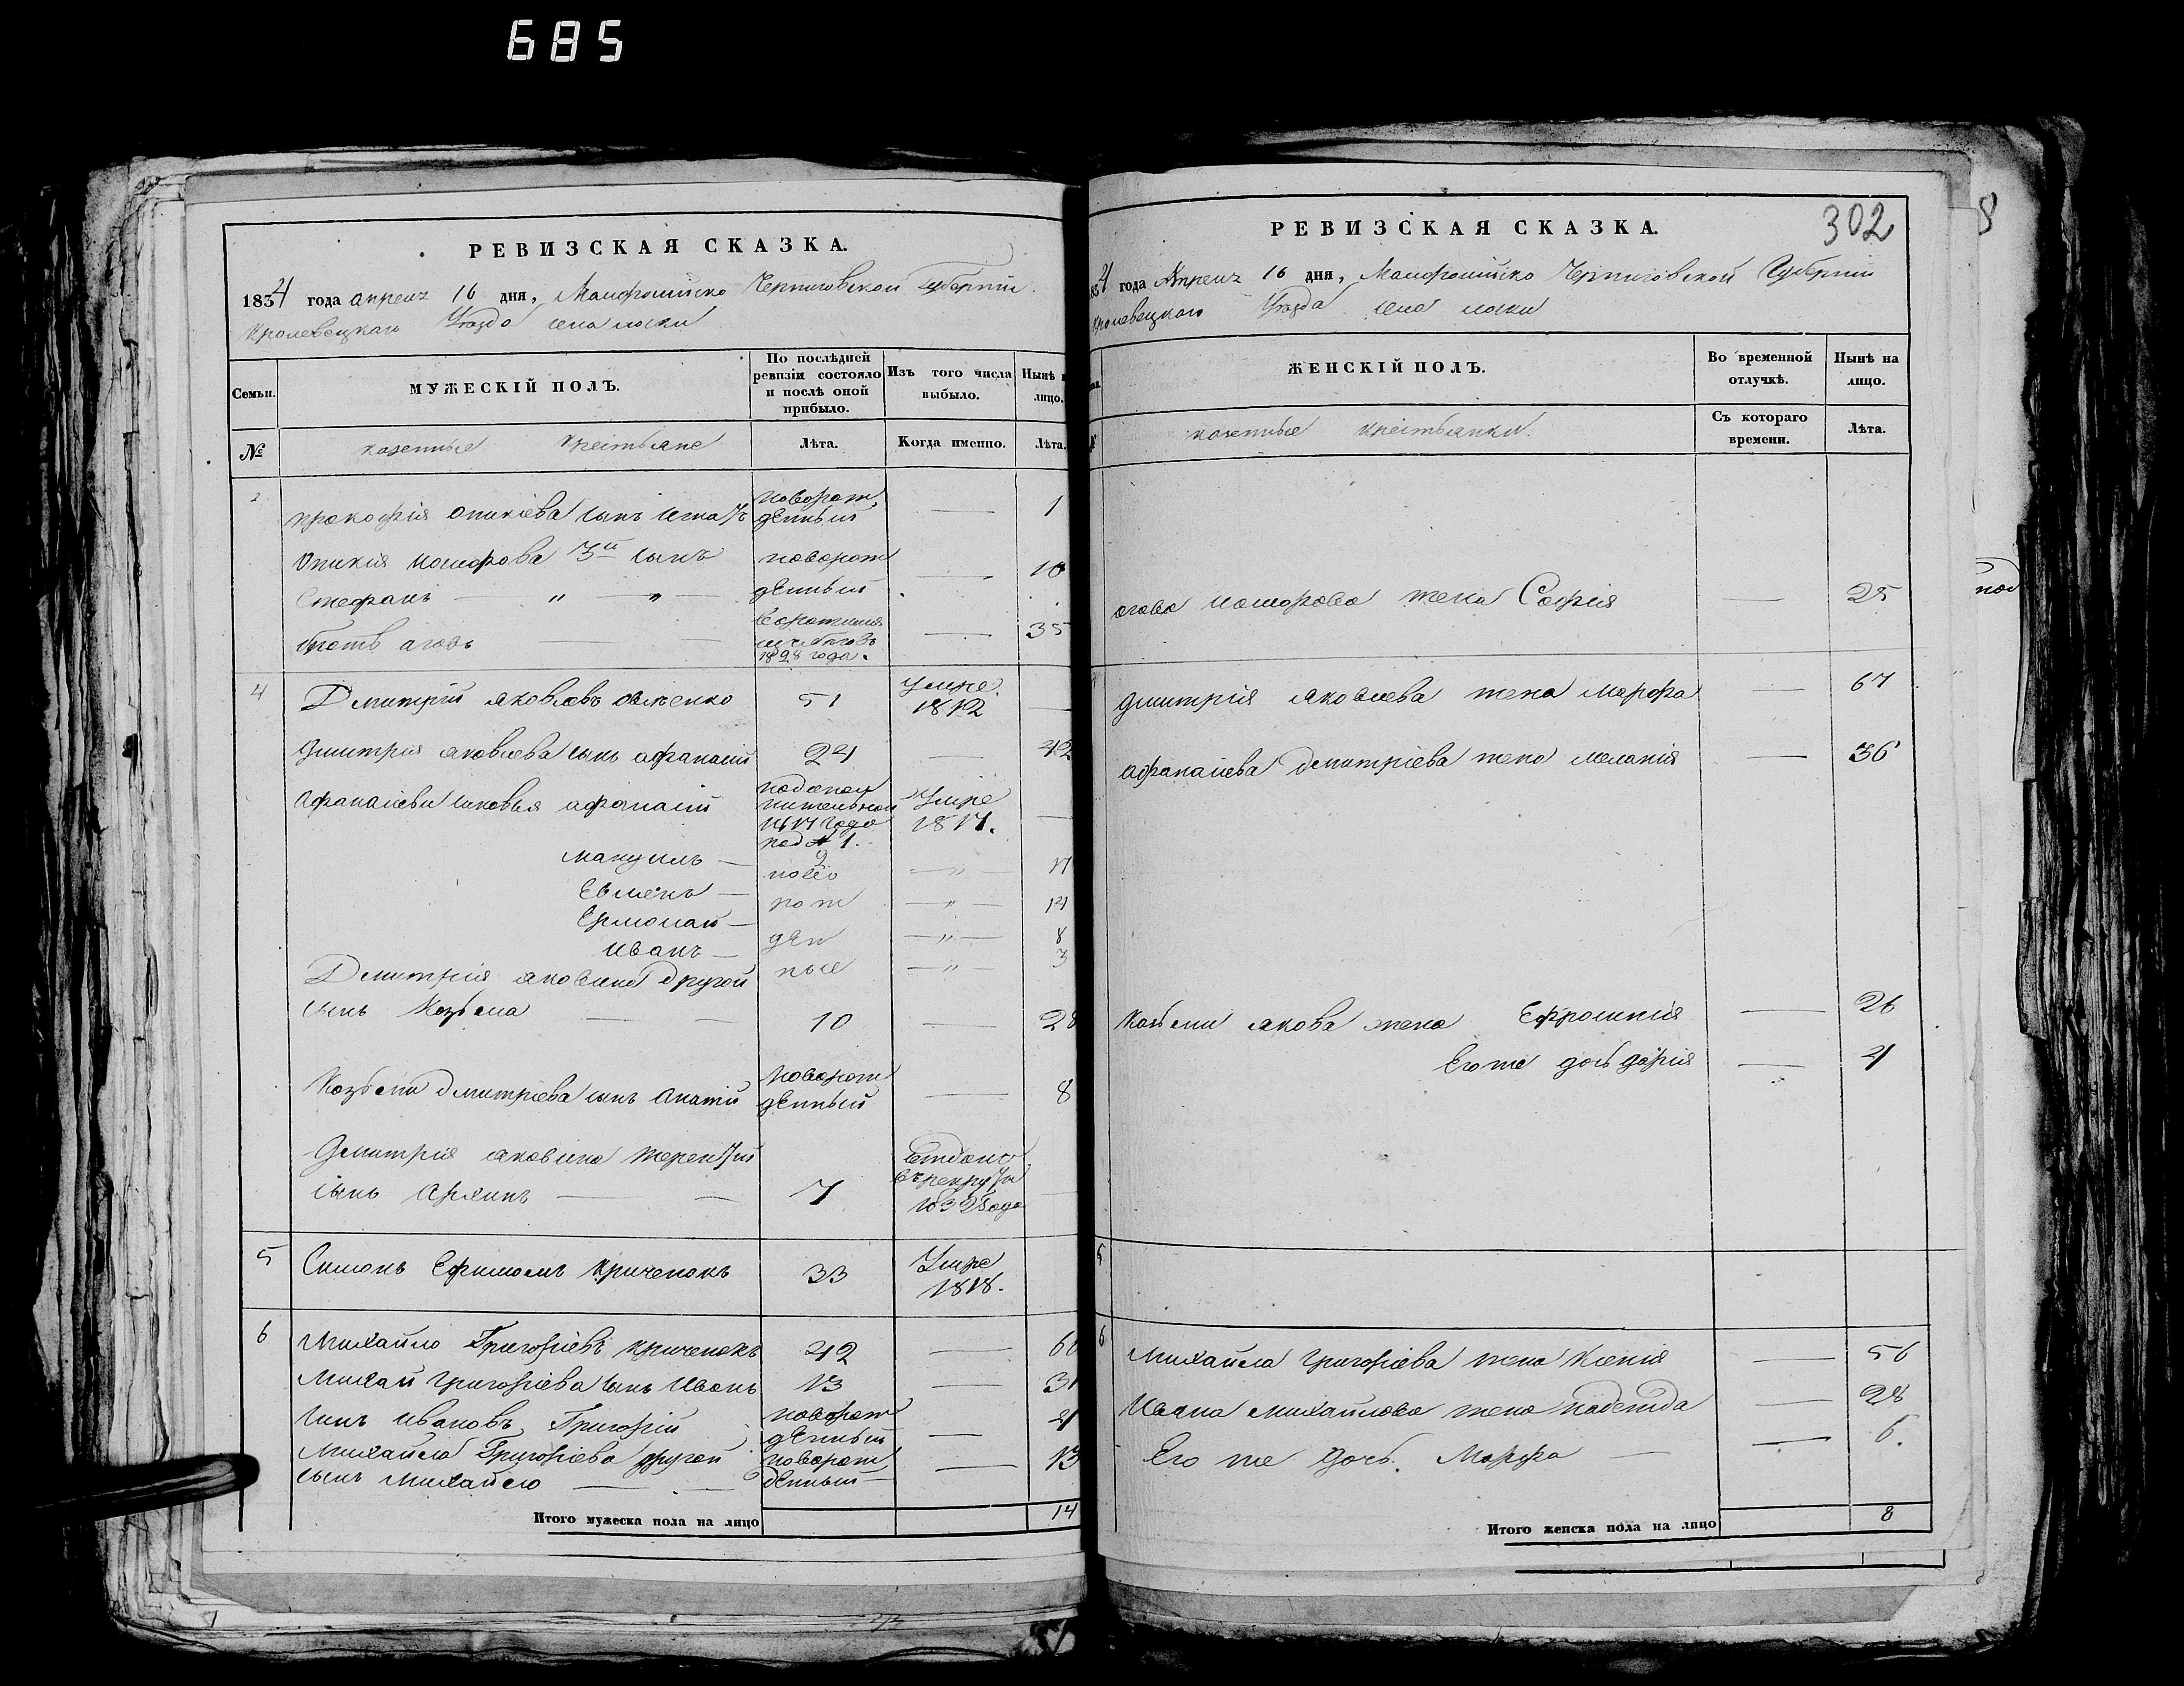 685
РЕВИЗСКАЯ СКАЗКА.
1834 года апреля 16 дня, Малороссійско Черниговской Губерніи
Кролевецкаго Уезда села
Семьи.
МУЖЕСКІЙ ПОЛЪ.
По послѣдней ревизіи состояло и послѣ оной прибыло.
Изъ того числа выбыло.
Нынѣ н лицо.
№
казенные крестьяне
Лѣта.
Когда именно.
Лѣта.
Прокофія сынъ новорож денный — 1
3й сынъ новорож
Стефанъ — " — " — денный — 10
35
1828 года.
4 Дмитрій Яковлевъ 51 Умре 1812 —
Дмитрія Яковлева сынъ Афанасій 24 — 42
Афанасіевы сыновья Афанасій
1817 года под № 1. Умре 1817. —
Мануилъ — 2 — " — 17
Евменъ — ново — " — 14
Ермолай — рож — " — 8
Иванъ — ден — " — 3
Дмитрія Яковлева другой ные — " —
сынъ Козьма — — 10 — 28
Козьмы Дмитріева сынъ новорож денный — 8
Дмитрія Яковлева третій
сынъ Архипъ — — 7 1832 года
5 Симонъ Ефимовъ Криченокъ 33 Умре 1818.
6 Михайло Григоріевъ Криченокъ 42 — 60
Михай Григоріева сынъ Иванъ 13 — 31
сынъ Ивановъ Григорій новорож денный — 4
Михайла Григоріева другой новорож
сынъ Михайло — — денный — 13
Итого мужеска пола на лицо 14
РЕВИЗСКАЯ СКАЗКА.
302
8
1834 года Апреля 16 дня, Малороссійско Черниговской Губерніи
Кролевецкаго Уезда села
ЖЕНСКІЙ ПОЛЪ.
Во временной отлучкѣ.
Нынѣ на лицо.
казенные крестьянки.
Съ котораго времени.
Лѣта.
жена Софія — 25
Дмитрія Яковлева жена Марфа — 67
Афанасіева Дмитріева жена Меланія — 36
Козьмы Якова жена Ефросинія — 26
Его же дочь Дарія — 4
5
6 Михайла Григоріева жена Ксенія — 56
Ивана Михайлова жена Надежда — 28
Его же дочь. Марфа — — 6.
Итого женска пола на лицо 8